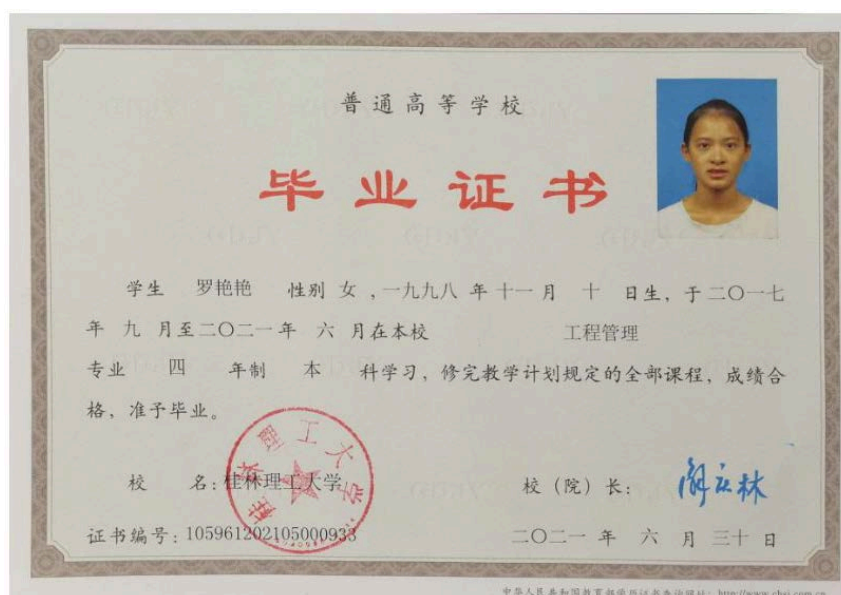 普通高等学校
毕业证书
学生 罗艳艳 性别 女 ,一九九八 年 十一 月 十 日生, 于二〇一七
年 九 月至二〇二一年 六 月在本校 工程管理
专业 四 年制 本 科学习, 修完教学计划规定的全部课程, 成绩合
格, 准予毕业。
桂林理工大学
校 名: 桂林理工大学 校 (院) 长: 解庆林
证书编号: 105961202105000933 二〇二一 年 六 月 三十 日
中华人民共和国教育部学历证书查询网址: http://www.chsi.com.cn